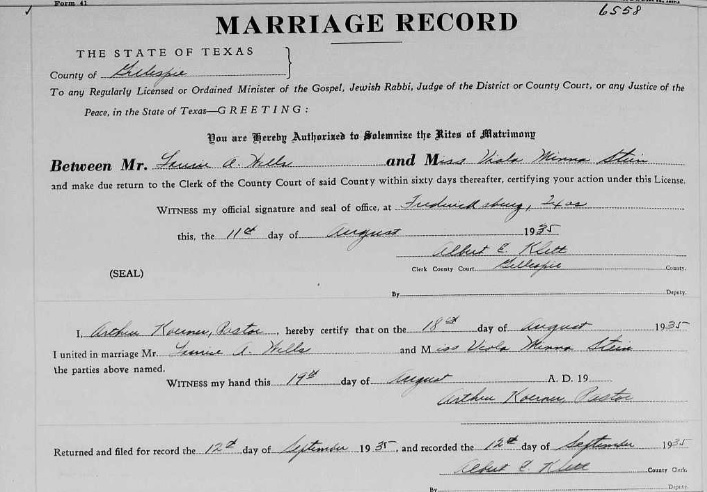 Form 41
6558
MARRIAGE RECORD
THE STATE OF TEXAS
County of Gillespie
To any Regularly Licensed or Ordained Minister of the Gospel, Jewish Rabbi, Judge of the District or County Court, or any Justice of the
Peace, in the State of Texas—GREETING:
You are Hereby Authorized to Solemnize the Rites of Matrimony
Between Mr. A. Wells and Miss Viola Minna Stein
and make due return to the Clerk of the County Court of said County within sixty days thereafter, certifying your action under this License.
WITNESS my official signature and seal of office, at Fredericksburg, Texas
this, the 11th day of August 1935
Albert E. Klett
(SEAL) Clerk County Court, Gillespie County.
By Deputy.
I, Arthur Koerner, Pastor, hereby certify that on the 18th day of August 1935
I united in marriage Mr. A. Wells and Miss Viola Minna Stein
the parties above named.
WITNESS my hand this 19th day of August A. D. 19
Arthur Koerner, Pastor
Returned and filed for record the 12th day of September 1935, and recorded the 12th day of September 1935
Albert E. Klett County Clerk.
By Deputy.